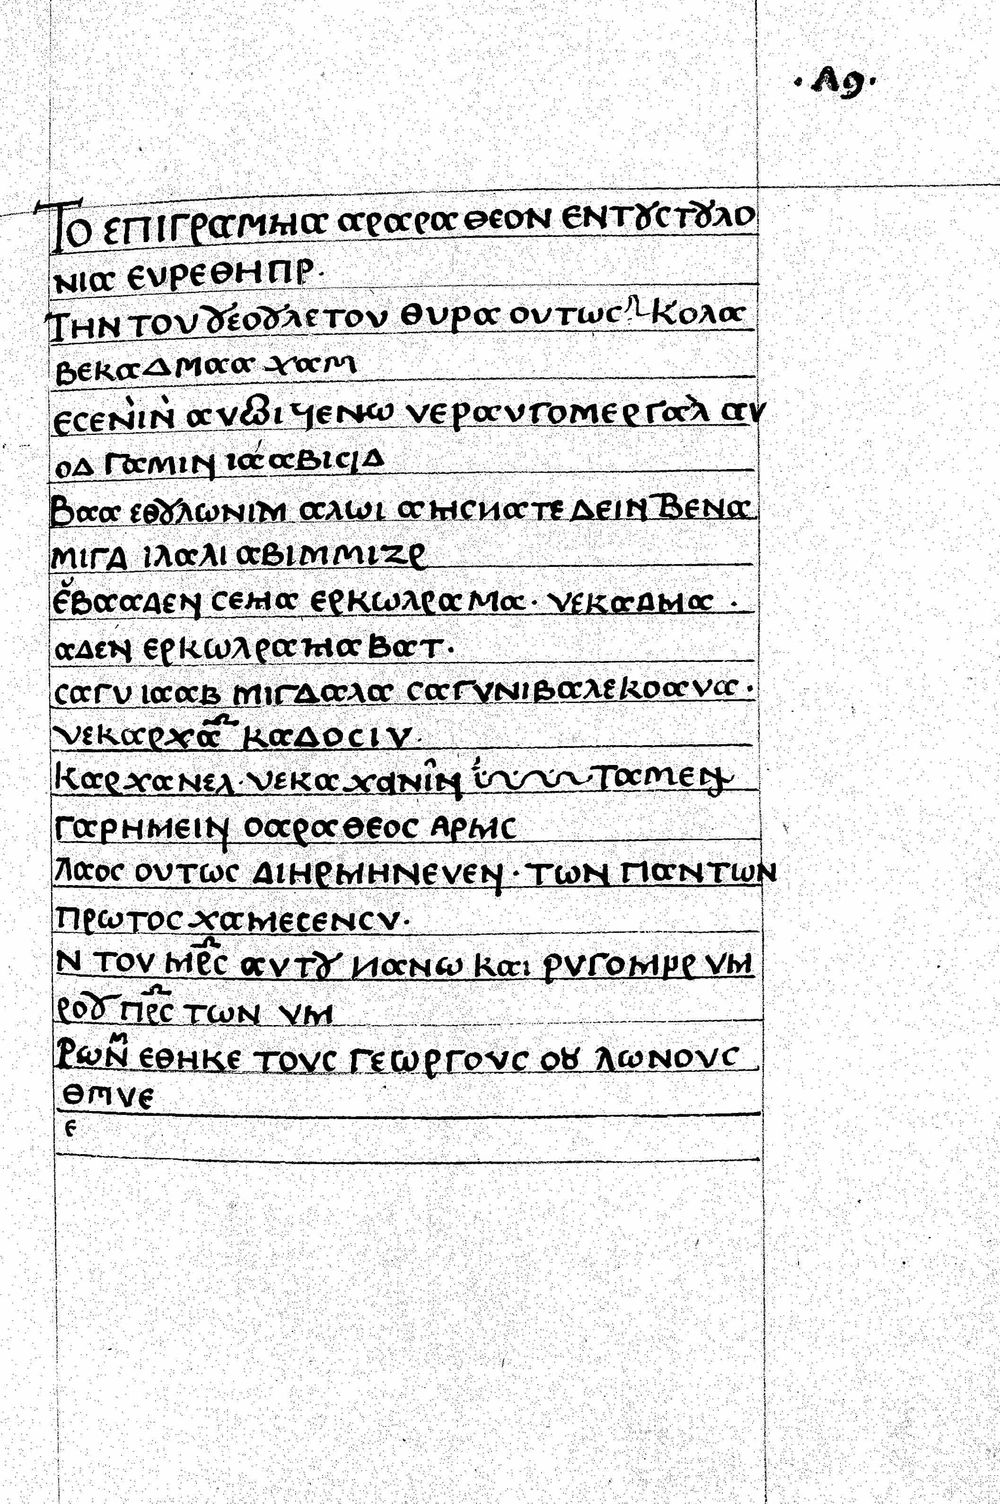 · Λ9 ·
Το επιγραμμα αραραθεον εντȣστȣλο
νια ευρεθηπρ.
Την του ουτως Κολα
βεκαδμαα χαμ
εσενιν νεραυγομεργαλ αν
οδ γαμιν ιααβισιδ
Βαα εθȣλωνιμ αλωι δειν βενα
μιγδ ιλαλι αβιμμιζρ
εβααδεν σεμα ερκωλραμα · νεκαδμα ·
αδεν ερκωλραμα βατ ·
σαγυ ιααβ μιγδαλα σαγυνιβαλεκοανα ·
νεκαρχα καδοσιν.
Καρχανελ · νεκα χανιν ταμεν
γαρημειν οαραθεος αρμς
λαος ουτως διηρμηνευεν · των παντων
πρωτος χαμεσενσυ ·
ν του μρς αυτȣ νανω και ρυγομμρ υμ
ροȣ πρς των υμ
ρων εθηκε τους γεωργους οȣ λωνους
θμυε
ε